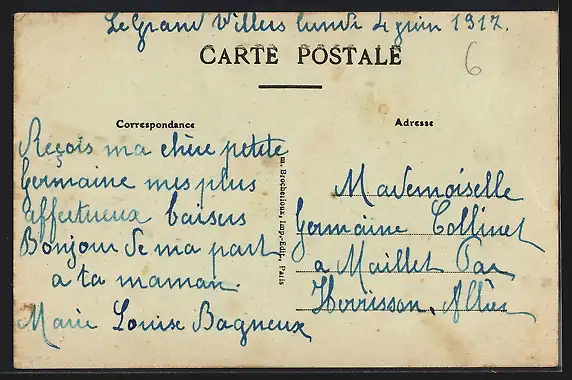 Le Grand Villers lundi 4 juin 1917.
CARTE POSTALE
6
Correspondance
Adresse
Reçois ma chère petite
Germaine mes plus
affectueux baisers
Bonjour de ma part
a ta maman.
Marie Louise Bagneux
m. Brocherioux, Imp.-Edit., Paris
Mademoiselle
Germaine Collinet
a Maillet Par
Herrisson, Allier